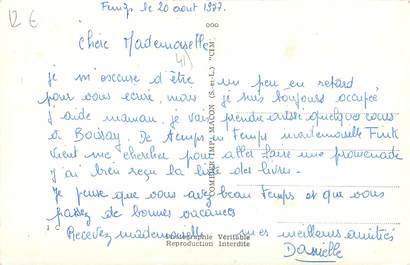 12 €
le 20 août 1977.
Chère Mademoiselle
je m'excuse d'être un peu en retard
pour vous écrire, mais je suis toujours occupée
j'aide maman, je vais prendre aussi quelques cours
et Boissy. De temps en temps mademoiselle Funk
vient me chercher pour aller faire une promenade
j'ai bien reçu la liste des livres.
Je pense que vous avez beau temps et que vous
passez de bonnes vacances
Recevez mademoiselle mes meilleures amitiés
Danielle
COMBIER IMP. MACON (S.-et-L.) "CIM"
Photographie Véritable
Reproduction Interdite